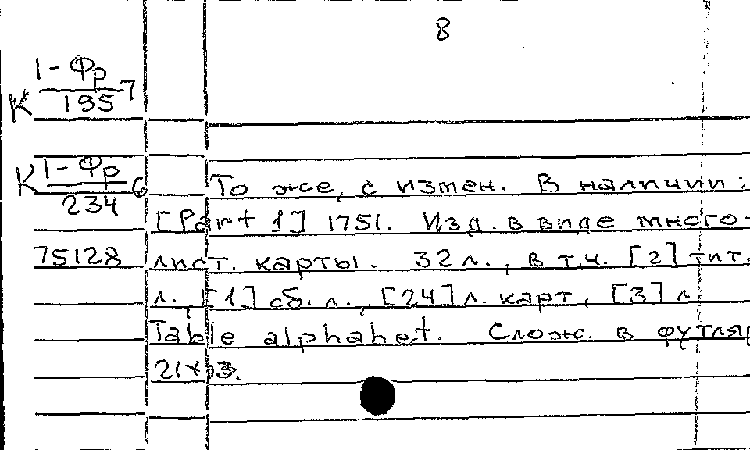 8
К 1-Фр/195 7
К 1-Фр/234 6
То же, с измен. В наличии:
[Part 1] 1751. Изд. в виде много-
75128 лист. карты. 32 л., в т.ч. [2] тит.
л., [1] об. л., [24] л. карт, [3] л.
Table alphabet. Слож. в футляр